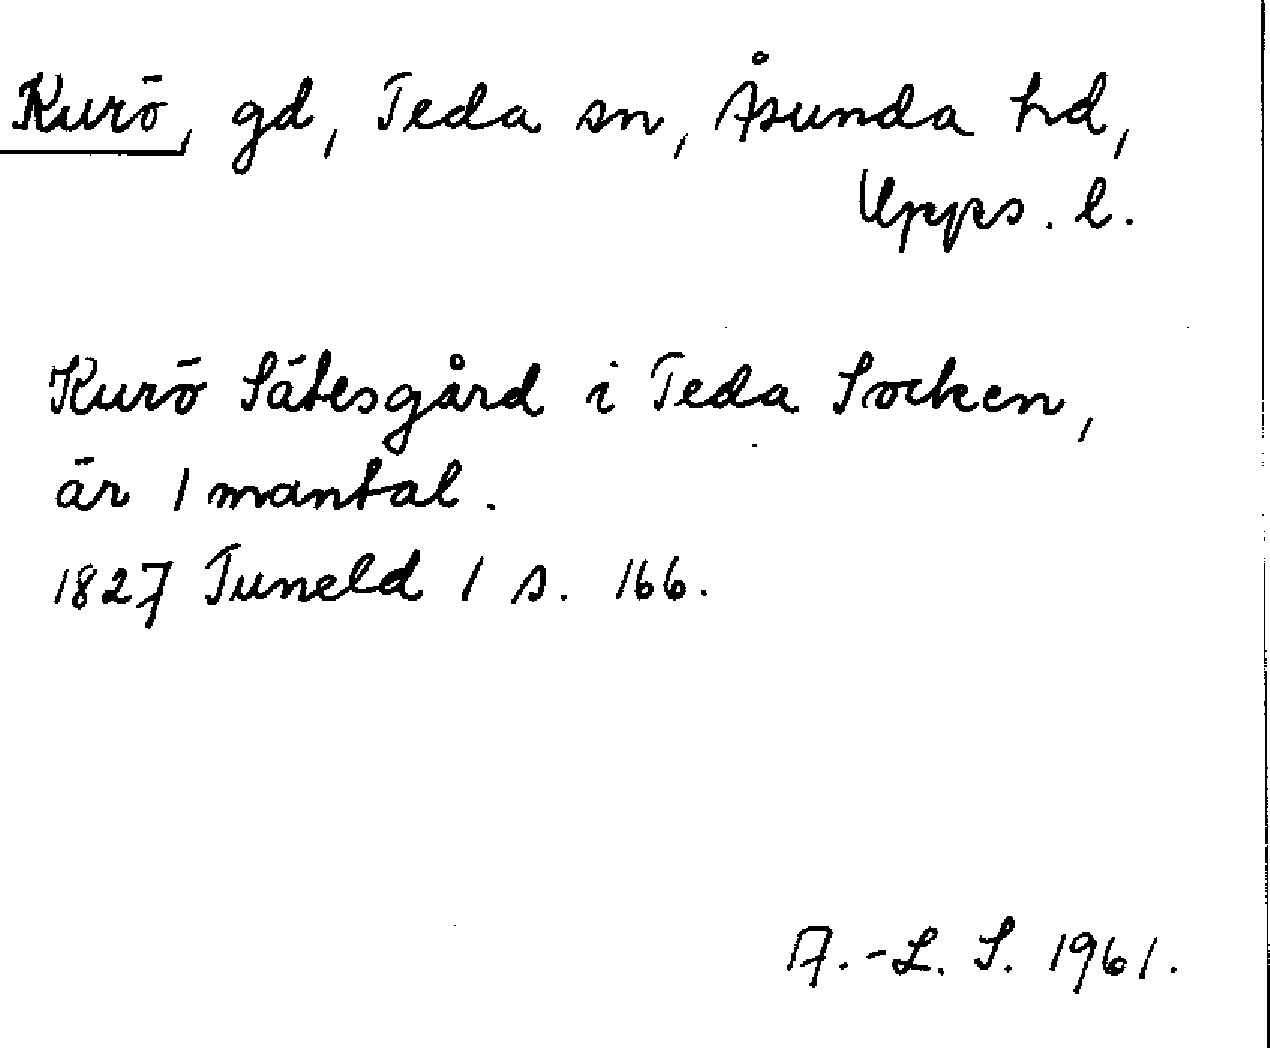 Kurö, gd, Teda sn, Åsunda hd,
Upps. l.
Kurö Sätesgård i Teda Socken,
är 1 mantal.
1827 Tuneld 1 s. 166.
A.-L. S. 1961.